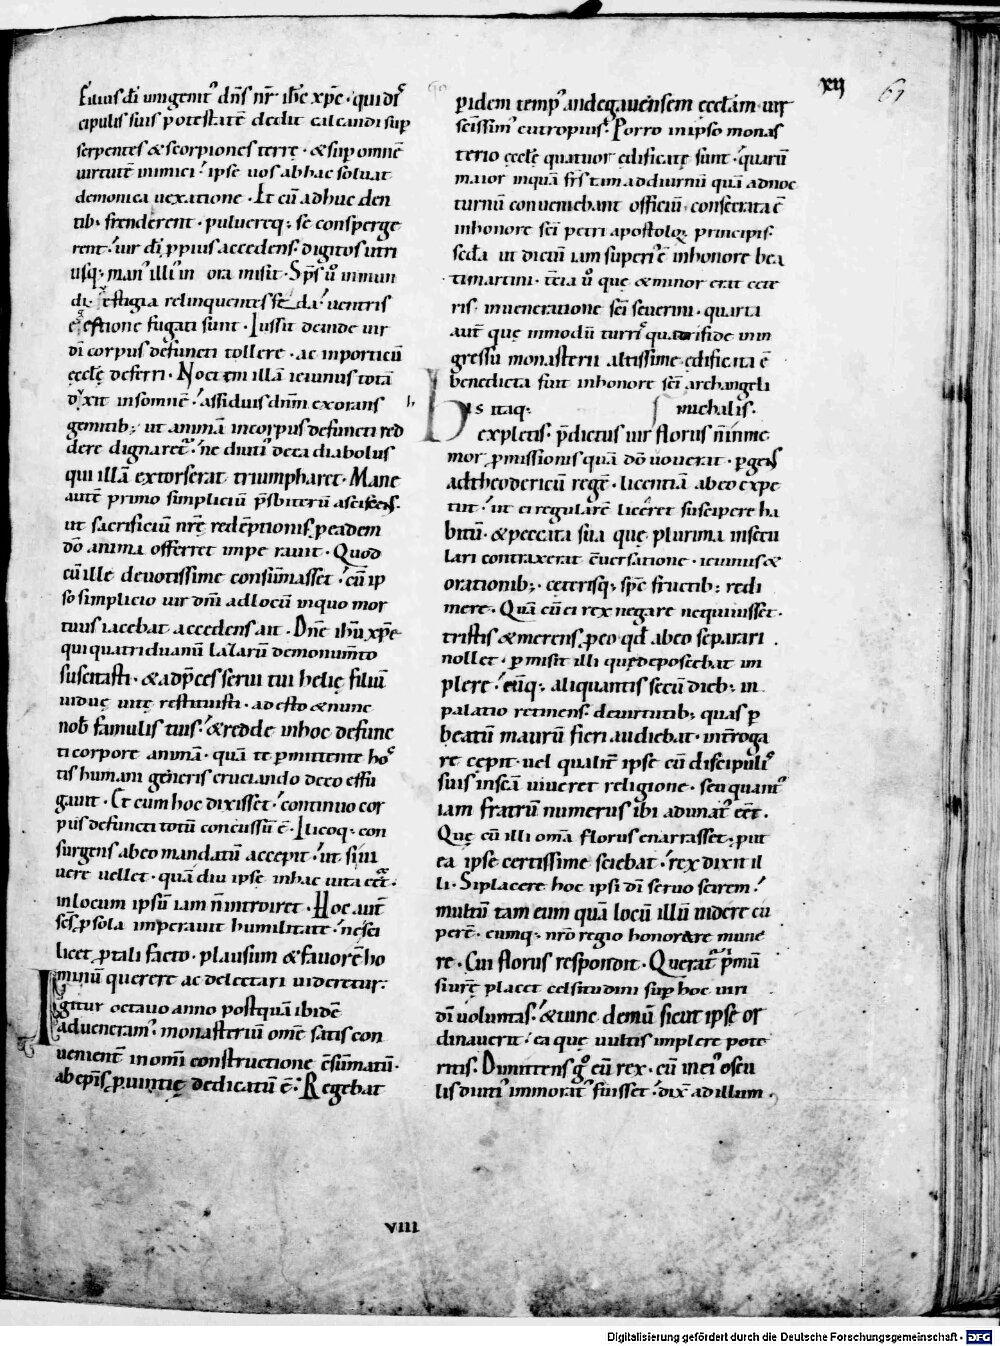 xij 61
Filius di unigenit᾽ dns nr ihe xpe · qui dis
cipulis suis potestate dedit calcandi sup
serpentes & scorpiones terrę · & sup omne
uirtute inimici · ipse uos ab hac soluat
demonica uexatione · Et cu adhuc den
tib; frenderent · puluereq; se consperge
rent · uir di ppius accedens · digitos utri
usq; man᾽ illi᾽ in ora misit · Sps u inmun
di · uestigia relinquentes feda · uentris
egestione fugati sunt · Iussit deinde uir
di corpus defuncti tollere · ac in porticu
eccle deferri · Noctem illa ieiunus tota
duxit insomne · assiduis dnm exorans
gemitib; ut anima in corpus defuncti red
dere dignaret᾽ · ne diuti᾽ de ea diabolus
qui illa extorserat triumpharet · Mane
aute primo simpliciu psbiteru asciscens ·
ut sacrificiu nre redeptionis p eadem
do anima offerret imperauit · Quod
cu ille deuotissime consumasset · cu ip
so simplicio uir dni ad locu in quo mor
tuus iacebat accedens ait · Dne ihu xpe
qui quatriduanu lazaru de monumto
suscitasti · & ad pces serui tui helię filiu
uiduę uitę restituisti · adesto & nunc
nob famulis tuis · & redde in hoc defunc
ti corpore anima · qua te pmittente hos
tis humani generis cruciando de eo effu
gauit · Et cum hoc dixisset · continuo cor
pus defuncti totu concussu e · Ilicoq; con
surgens ab eo mandatu accepit · ut si ui
uere uellet · quadiu ipse in hac uita eet ·
in locum ipsu iam n introiret · Hoc aut
ses p sola imperauit humilitate · ne sci
licet p tali facto · plausum & fauore ho
minu querere ac delectari uideretur ·
Igitur octauo anno postqua ibide
adueneram᾽ · monasteriu ome satis con
uenient᾽ in omi constructione csumatu ·
ab epis puintię dedicatu e · Regebat
viii
pidem temp᾽ andegauensem ecclam uir
scissim᾽ eutropius · Porro in ipso monas
terio eccle quatuor edificatę sunt · quaru
maior in qua frs tam ad diurnu qua ad noc
turnu conueniebant officiu · consecrata e
in honore sci petri apostoloꝝ principis ·
scda ut dicim iam superi᾽ e in honore bea
ti martini · tcia u quę & minor erat cete
ris · in ueneratione sci seuerini · quarta
aut quę in modu turris quadrifide in in
gressu monasterii altissime edificata e
benedicta fuit in honore sci archangeli
His itaq; michalis ·
expletis · pdictus uir florus n inme
mor pmissionis qua do uouerat · pgens
ad theodericu rege · licentia ab eo expe
tiit · ut ei regulare liceret suscipere ha
bitu · & peccata sua quę plurima in secu
lari contraxerat cuersatione · ieiuniis &
orationib; · ceterisq; spe fructib; redi
mere · Qua cu ei rex negare nequiuisset ·
tristis & merens p eo qd ab eo separari
nollet · pmisit illi que deposcebat im
plere · euq; aliquantis secu dieb; in
palatio retinens · de uirtutib; quas p
beatu mauru fieri audiebat · interroga
re cepit · uel qualit ipse cu discipulis
suis in scam uiueret religione · seu quant᾽
iam fratru numerus ibi adunat᾽ eet ·
Quę cu illi oma florus enarrasset · put
ea ipse certissime sciebat · rex dixit il
li · Si placere hoc ipsi di seruo scirem ·
multu tam eum qua locu illu uidere cu
pere · eumq; nro regio honorare mune
re · Cui florus respondit · Querat᾽ pmu
si ure placet celsitudini sup hoc uiri
di uoluntas · & tunc demu sicut ipse or
dinauerit · ea quę uultis implere pote
ritis · Dimittens g eu rex · cu in ei᾽ oscu
lis diuti᾽ immorat᾽ fuisset · dix ad illum ·
Digitalisierung gefördert durch die Deutsche Forschungsgemeinschaft - DFG